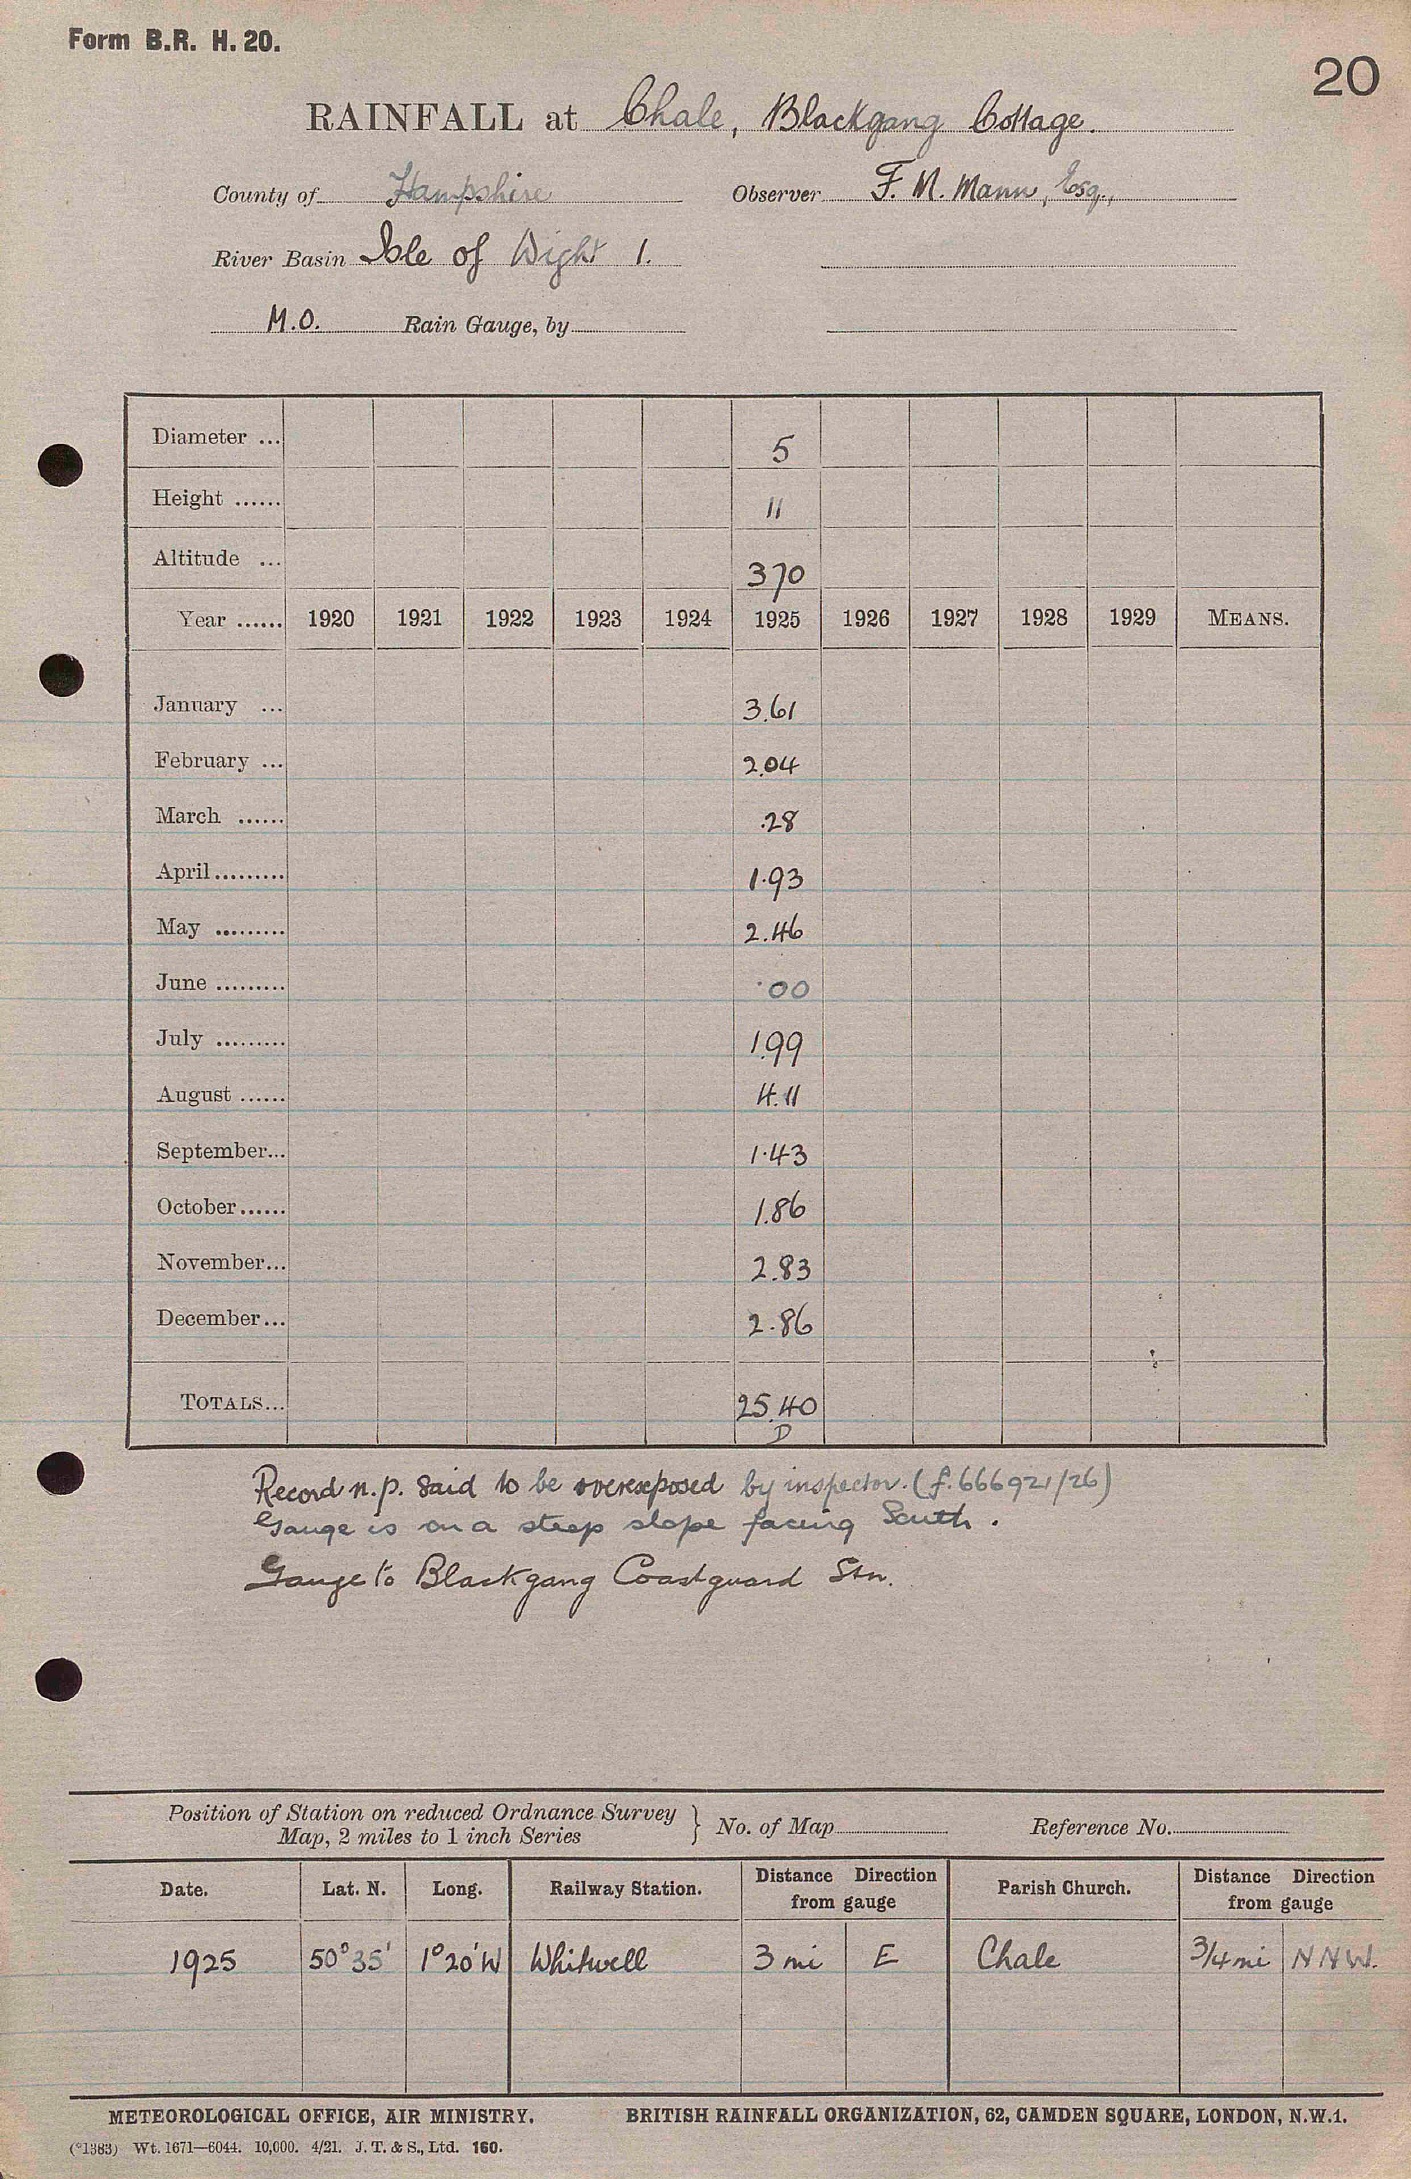 Form B.R. H. 20.
20
RAINFALL at Chale, Blackgang Cottage.
County of Hampshire Observer F. M. Mann, Esq.,
River Basin Isle of Wight 1.
M.O. Rain Gauge, by
Diameter ... 5
Height ...... 11
Altitude ... 370
Year ...... 1920 1921 1922 1923 1924 1925 1926 1927 1928 1929 MEANS.
January ... 3.61
February ... 2.04
March ...... .28
April ......... 1.93
May ......... 2.46
June ......... .00
July ......... 1.99
August ...... 4.11
September... 1.43
October...... 1.86
November... 2.83
December... 2.86
TOTALS... 25.40
D
Record n.p. said to be overexposed by inspector. (f. 666921/26)
Gauge is on a steep slope facing South.
Gauge to Blackgang Coastguard Stn.
Position of Station on reduced Ordnance Survey
Map, 2 miles to 1 inch Series } No. of Map Reference No.
Date. Lat. N. Long. Railway Station. Distance Direction from gauge Parish Church. Distance Direction from gauge
1925 50°35' 1°20'W Whitwell 3 mi E Chale 3/4 mi NNW.
METEOROLOGICAL OFFICE, AIR MINISTRY. BRITISH RAINFALL ORGANIZATION, 62, CAMDEN SQUARE, LONDON, N.W.1.
(*1383) Wt. 1671—6044. 10,000. 4/21. J. T. & S., Ltd. 160.